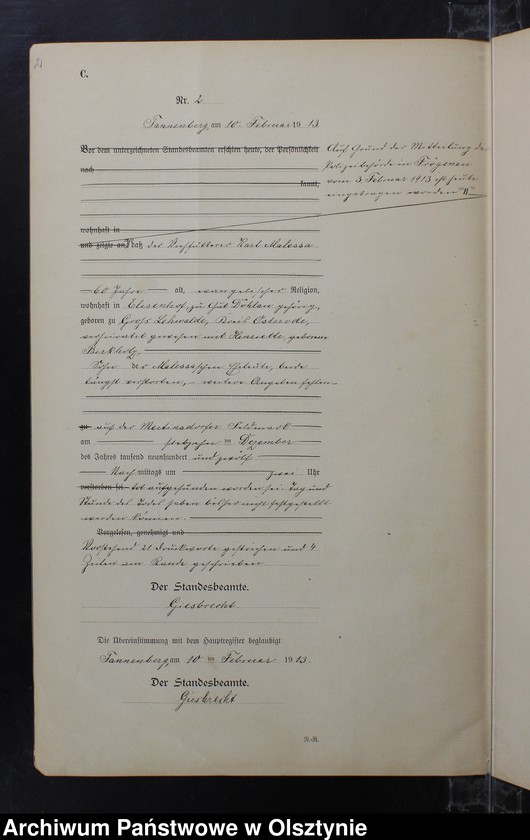 2
C.
Nr. 2
Tannenberg, am 10. Februar 1913.
Vor dem unterzeichneten Standesbeamten erschien heute, der Persönlichkeit
nach
kannt,
Auf Grund der Mitteilung der
Polizeibehörde in Frögenau
vom 3. Februar 1913 ist heute
eingetragen worden
wohnhaft in
und zeigte an, daß der Karl Malessa
60 Jahre alt, evangelischer Religion,
wohnhaft in Elisenhof, zu Gut Döhlau gehörig,
geboren zu Groß Lehwalde, Kreis Osterode,
verheiratet gewesen mit Henriette geborenen
Berkholz,
Sohn der Malessaschen Eheleute, beide
längst verstorben, weitere Angaben fehlen
zu auf der Mertinsdorfer Feldmark
am siebzehn ten Dezember
des Jahres tausend neunhundert und zwölf
Nach mittags um zwei Uhr
verstorben sei tot aufgefunden worden sei. Tag und
Stunde des Todes haben bisher nicht festgestellt
werden können.
Vorgelesen, genehmigt und
Vorstehend 21 Druckworte gestrichen und 4
Zeilen am Rande geschrieben.
Der Standesbeamte.
Giesbrecht.
Die Übereinstimmung mit dem Hauptregister beglaubigt
Tannenberg, am 10 ten Februar 1913.
Der Standesbeamte.
Giesbrecht
N.-R.
Archiwum Państwowe w Olsztynie